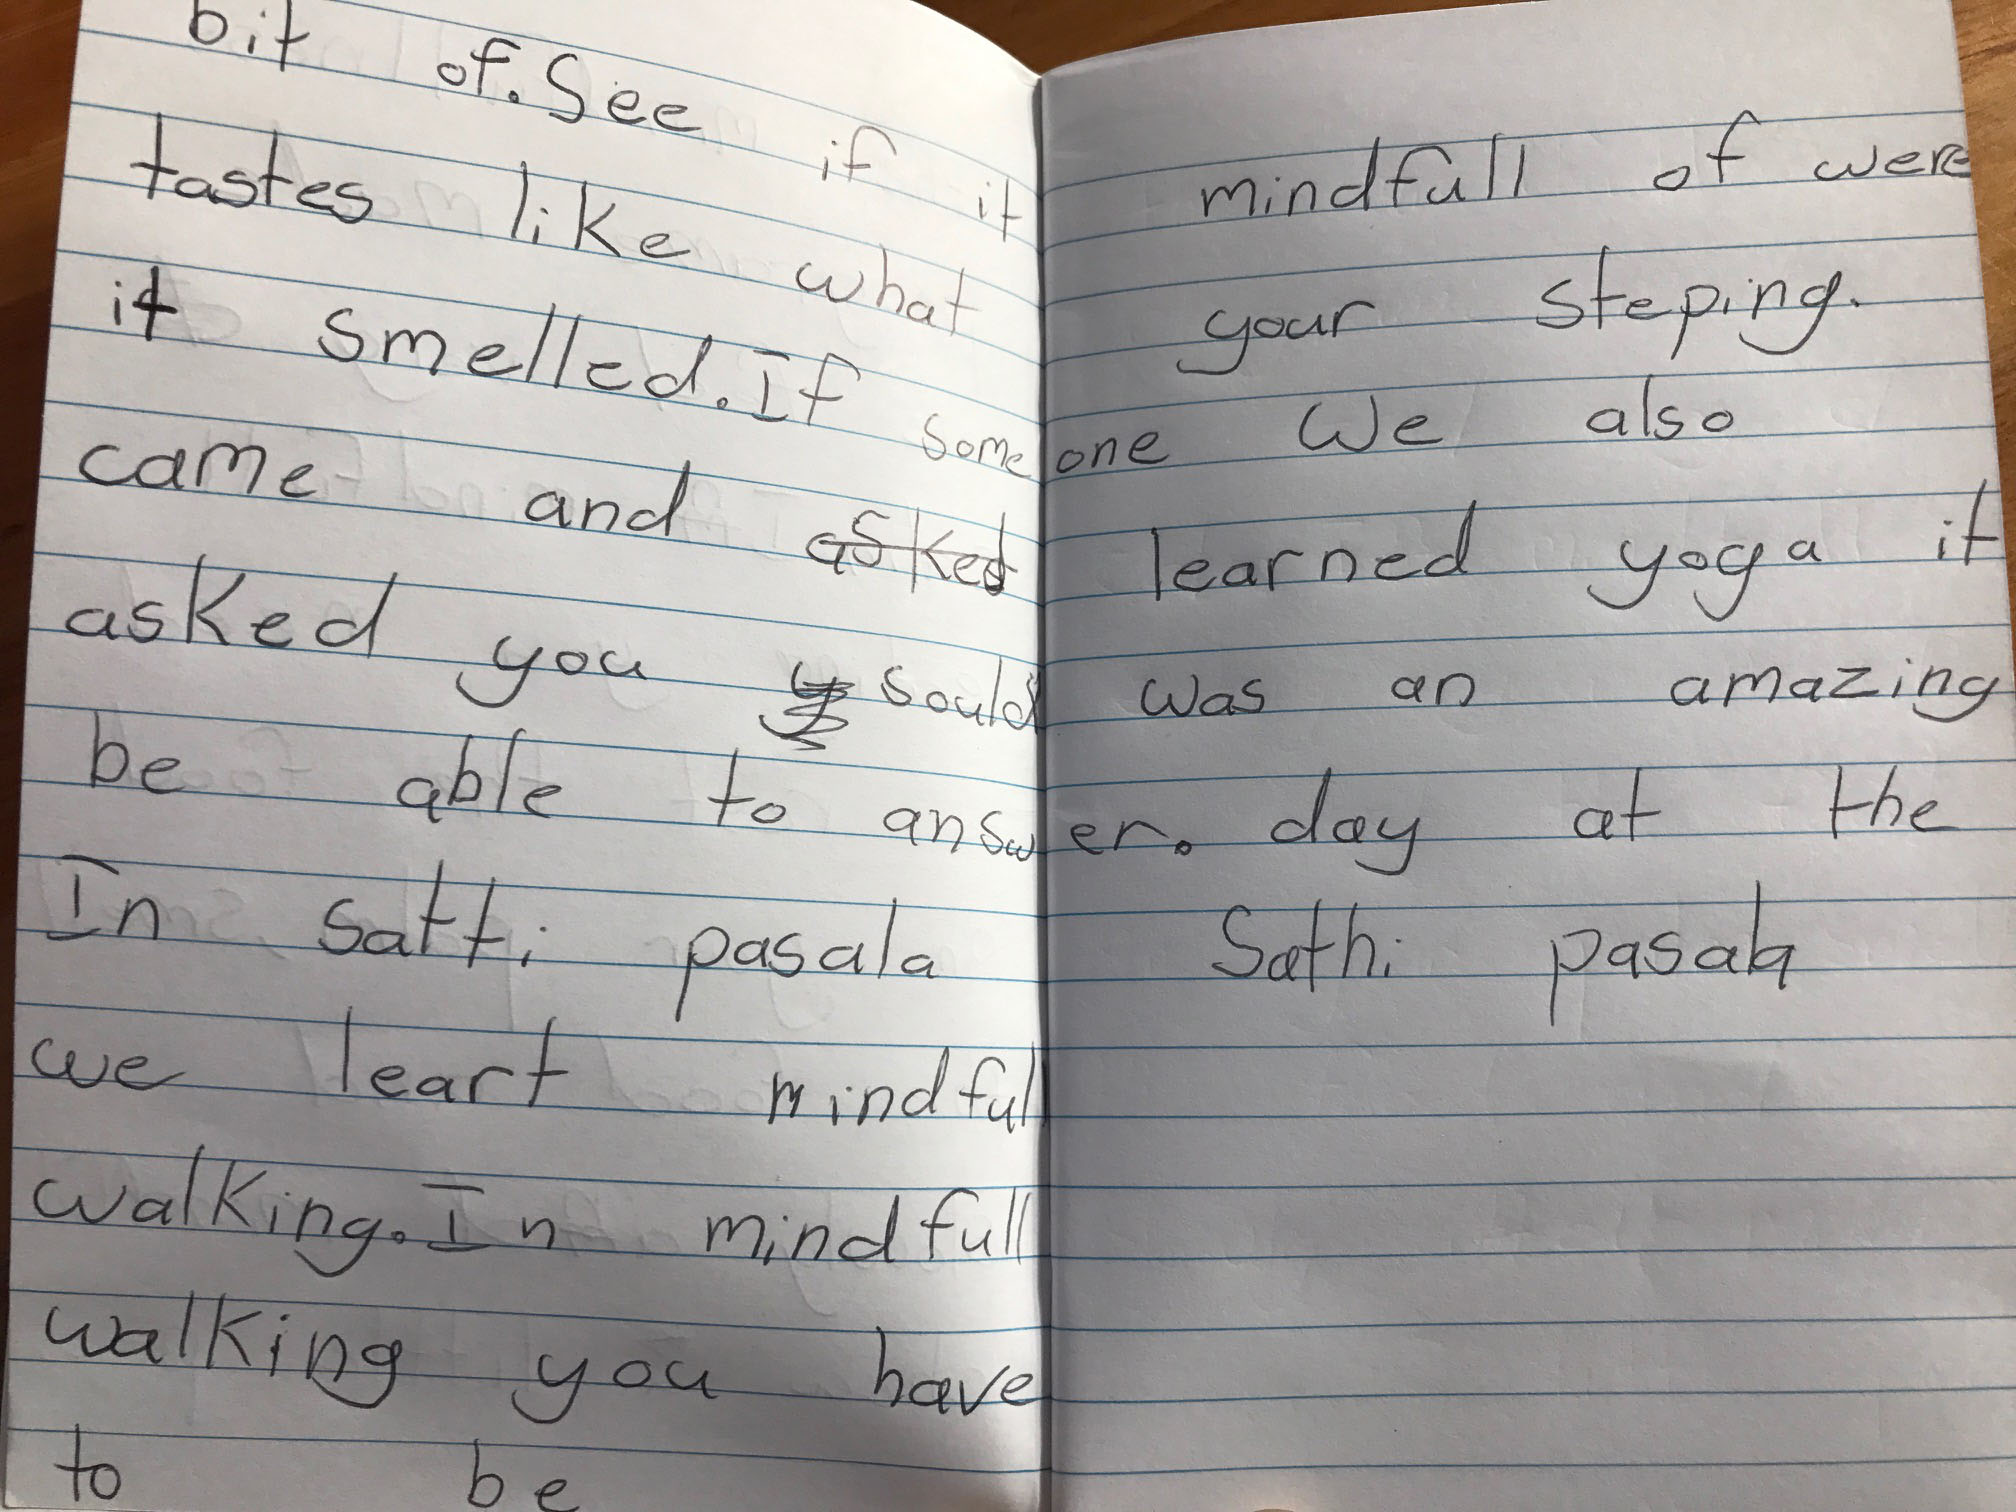 bit of. See if it
tastes like what
it smelled. If someone
came and asked
asked you sould
be able to answer.
In satti pasala
we leart mindfull
walking. In mindfull
walking you have
to be
mindfull of were
your steping.
We also
learned yoga it
was an amazing
day at the
Sathi pasala